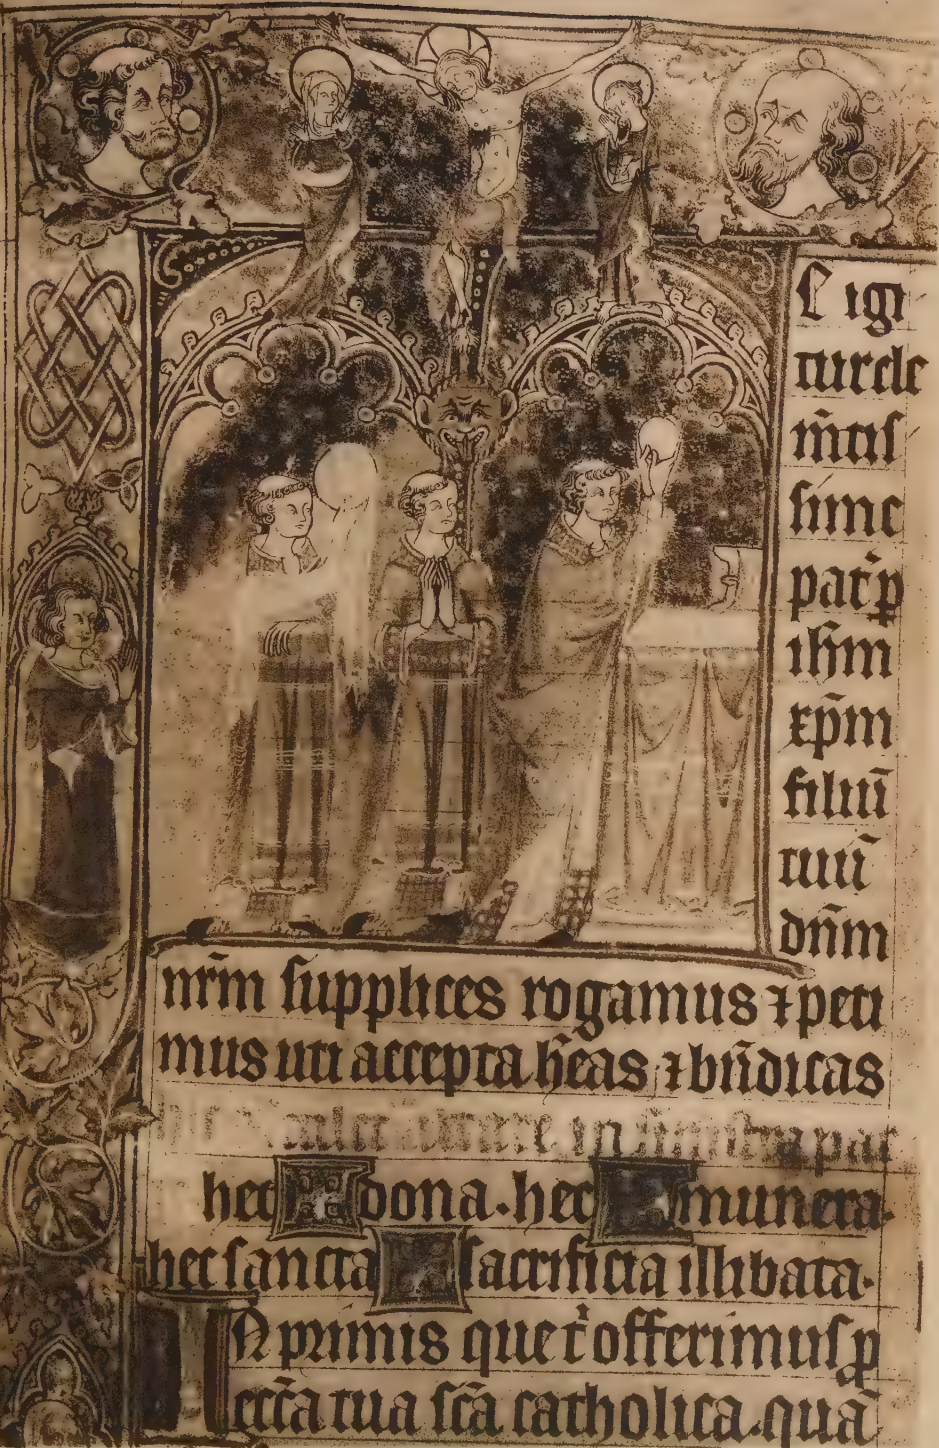 E igi
tur cle
m̄tis
sime
pat̄ ꝑ
ih̄m
xp̄m
filiū
tuū
dn̄m
nr̄m supplices rogamus ⁊ peti
mus uti accepta h̄eas ⁊ bn̄dicas
hec dona. hec munera.
hec sancta sacrificia illibata.
IN primis que t̄ offerimus ꝓ
eccl̄a tua sc̄a catholica. quā